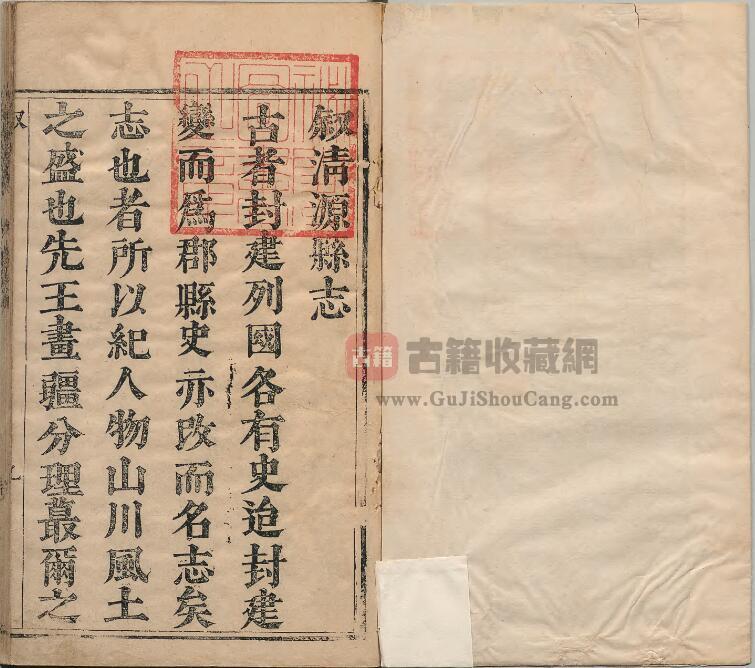 叙清源縣志
古者封建列國各有史迨封建
變而為郡縣史亦改而名志矣
志也者所以紀人物山川風土
之盛也先王畫疆分理蕞爾之
叙
古籍
古籍收藏網
www.GuJiShouCang.com